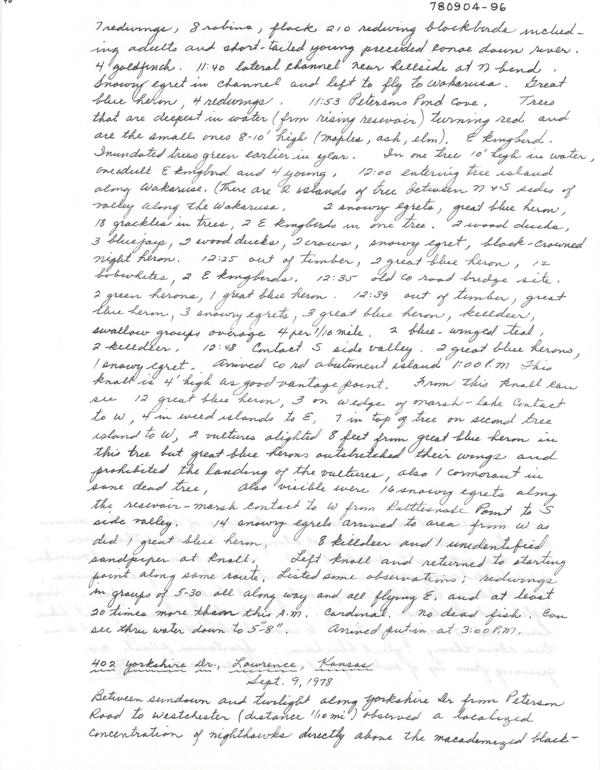 780904-96
7 redwings, 8 robins, flock 210 redwing blackbirds includ-
ing adults and short-tailed young preceded canoe down river.
4 goldfinch. 11:40 lateral channel near hillside at N bend.
Snowy egret in channel and left to fly to Wakarusa. Great
blue heron, 4 redwings. 11:53 Petersons Pond Cove. Trees
that are deepest in water (from rising resevoir) turning red and
are the small ones 8-10' high (maples, ash, elm). E kingbird.
Inundated trees green earlier in year. In one tree 10' high in water,
one adult E kingbird and 4 young. 12:00 entering tree island
along Wakarusa. (There are 2 islands of tree between N & S sides of
valley along the Wakarusa. 2 snowy egrets, great blue heron,
18 grackles in trees, 2 E kingbirds in one tree. 2 wood ducks,
3 bluejays, 2 wood ducks, 2 crows, snowy egret, black-crowned
night heron. 12:25 out of timber, 2 great blue heron, 12
bobwhites, 2 E kingbirds. 12:35 old co road bridge site.
2 green herons, 1 great blue heron. 12:39 out of timber, great
blue heron, 3 snowy egrets, 3 great blue heron, killdeer,
swallow groups average 4 per 1/10 mile. 2 blue-winged teal,
2 killdeer. 12:48 Contact S side valley. 2 great blue herons,
1 snowy egret. Arrived co rd abutement island 1:00 P.M. This
knoll is 4' high as good vantage point. From this knoll can
see 12 great blue heron, 3 on W edge of marsh-lake contact
to W, 4 in weed islands to E, 7 in top of tree on second tree
island to W, 2 vultures alighted 8 feet from great blue heron in
this tree but great blue herons outstretched their wings and
prohibited the landing of the vultures, also 1 cormorant in
same dead tree, Also visible were 16 snowy egrets along
the resevoir-marsh contact to W from Rattlesnake Point to S
side valley. 14 snowy egrets arrived to area from W as
did 1 great blue heron. 8 killdeer and 1 unidentified
sandpiper at knoll. Left knoll and returned to starting
point along same route. Listed some observations; redwings
in groups of 5-30 all along way and all flying E. and at least
20 times more than this A.M. Cardinal. No dead fish. Can
see thru water down to 5"-8". Arrived put-in at 3:00 P.M.
402 Yorkshire Dr., Lawrence, Kansas
Sept. 9, 1978
Between sundown and twilight along Yorkshire Dr from Peterson
Road to Westchester (distance 1/10 mi) observed a localized
concentration of nighthawks directly above the macadamized black-